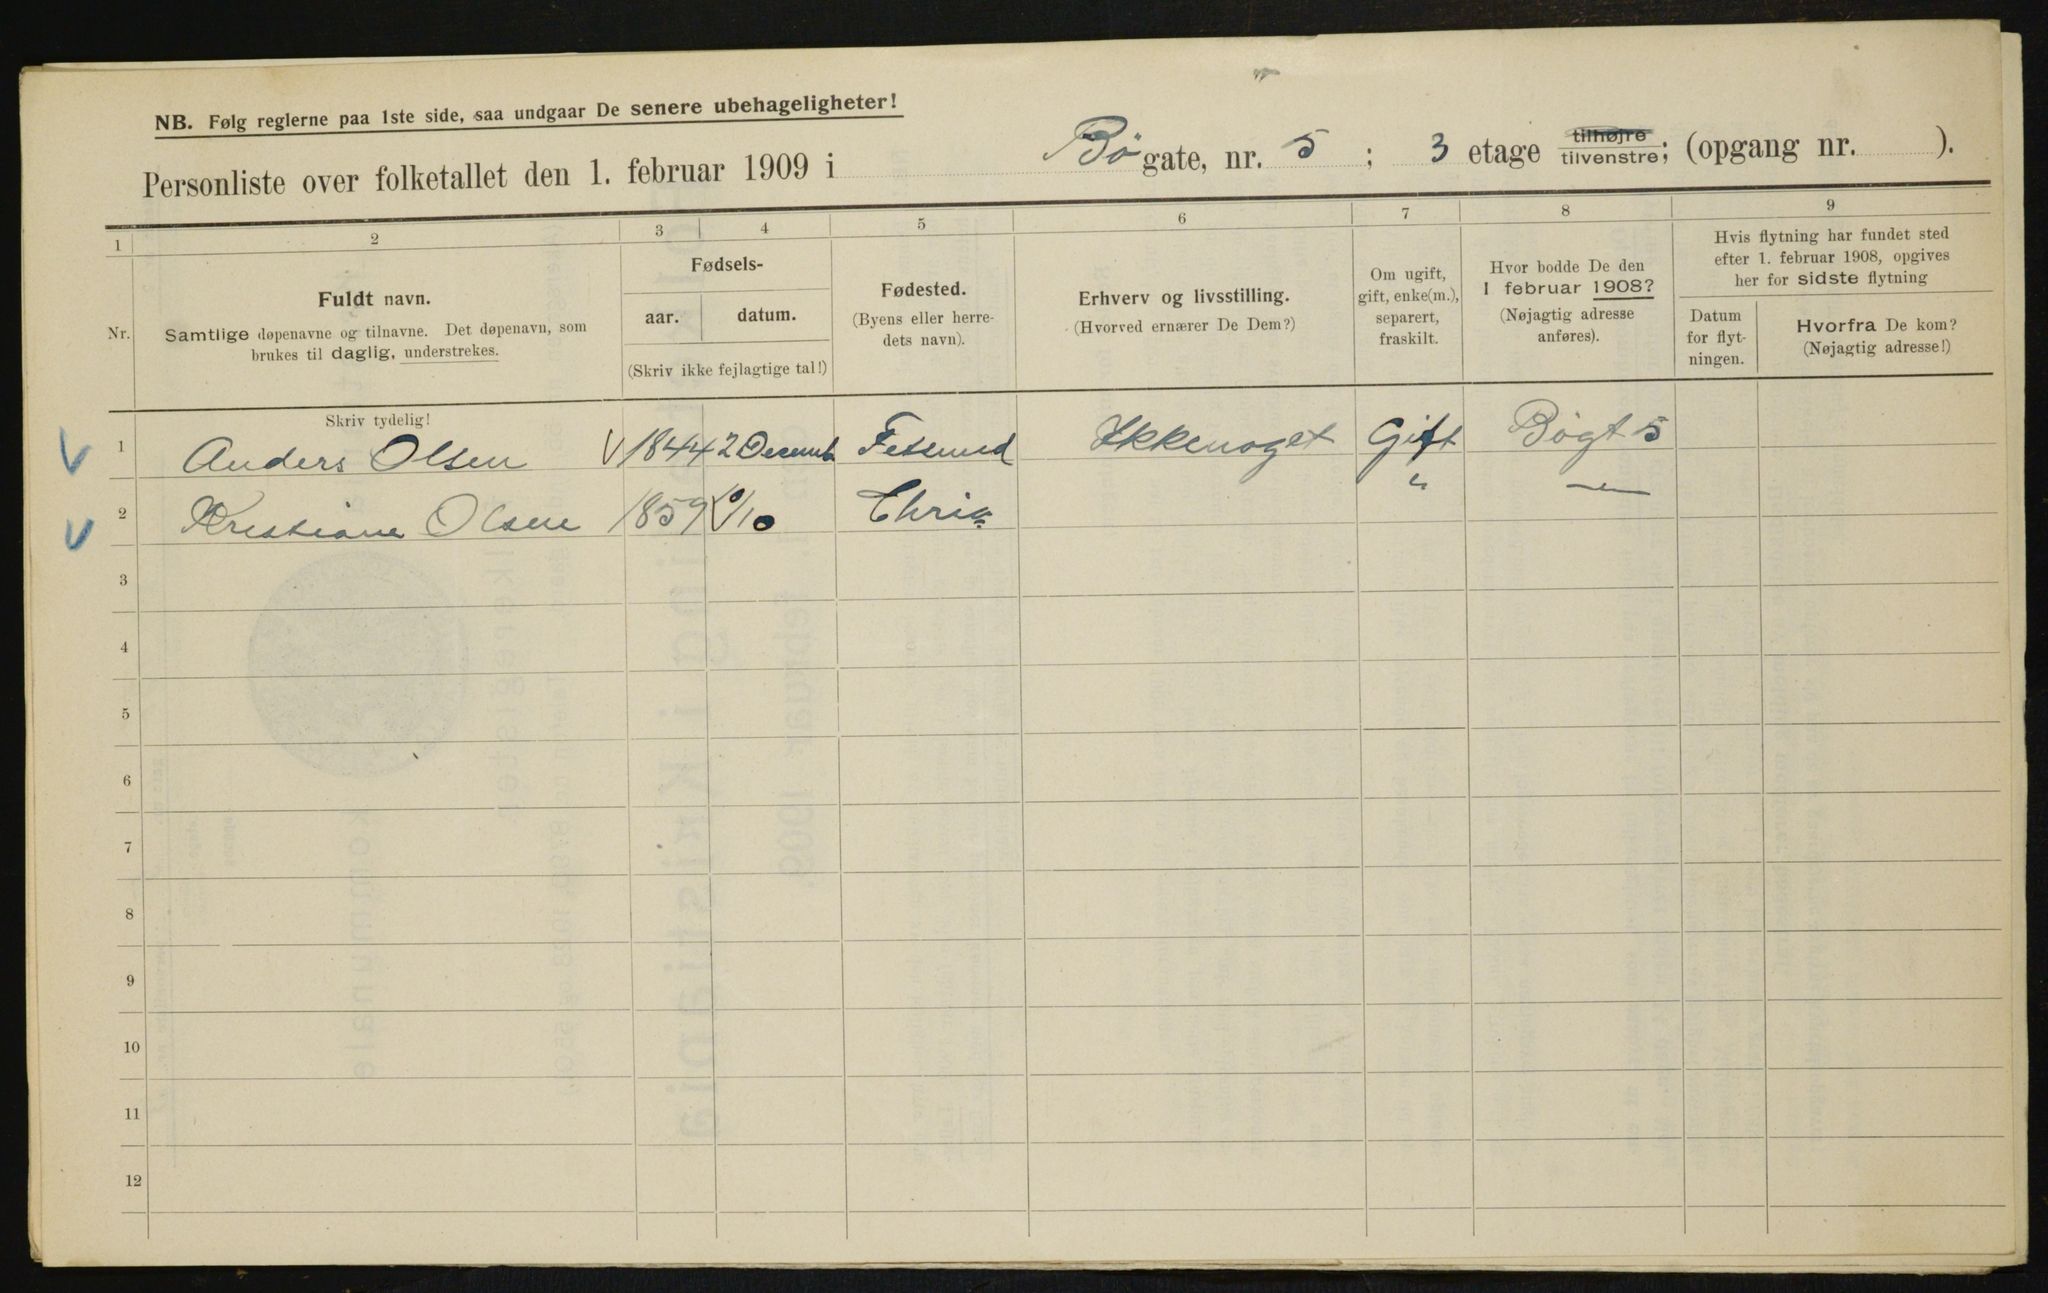 NB. Følg reglerne paa 1ste side, saa undgaar De senere ubehageligheter!
Personliste over folketallet den 1. februar 1909 i Bøgate, nr. 5; 3 etage tilhøjre tilvenstre; (opgang nr. ).
1 2 3 4 5 6 7 8 9
Nr.
Fuldt navn.
Samtlige døpenavne og tilnavne. Det døpenavn, som
brukes til daglig, understrekes.
Fødsels-
aar. datum.
(Skriv ikke fejlagtige tal!)
Fødested.
(Byens eller herre-
dets navn).
Erhverv og livsstilling.
(Hvorved ernærer De Dem?)
Om ugift,
gift, enke(m.),
separert,
fraskilt.
Hvor bodde De den
1 februar 1908?
(Nøjagtig adresse
anføres).
Hvis flytning har fundet sted
efter 1. februar 1908, opgives
her for sidste flytning
Datum
for flyt-
ningen.
Hvorfra De kom?
(Nøjagtig adresse!)
Skriv tydelig!
1 Anders Olsen 1844 2 Decemb Ikkenoget Gift Bøgt 5
2 Kristiane Olsen 1859 Chria " — " —
3
4
5
6
7
8
9
10
11
12